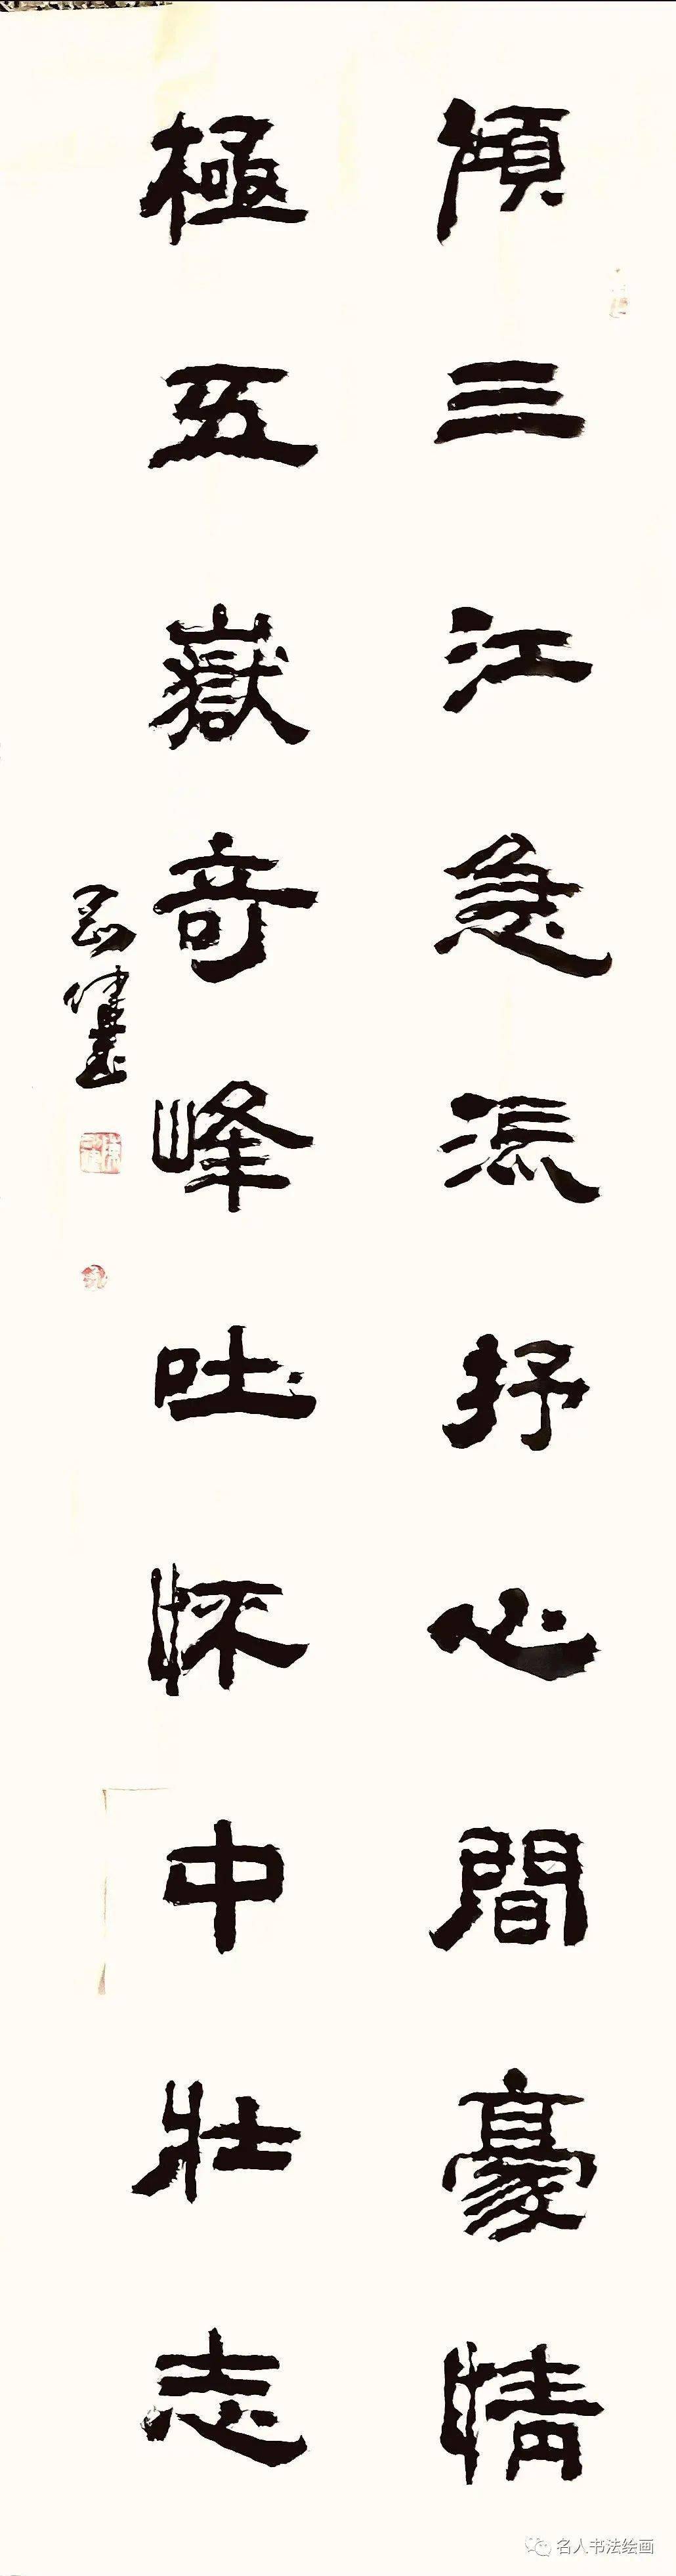 傾三江急派抒心間豪情
極五嶽奇峰吐怀中壯志
健書
名人书法绘画